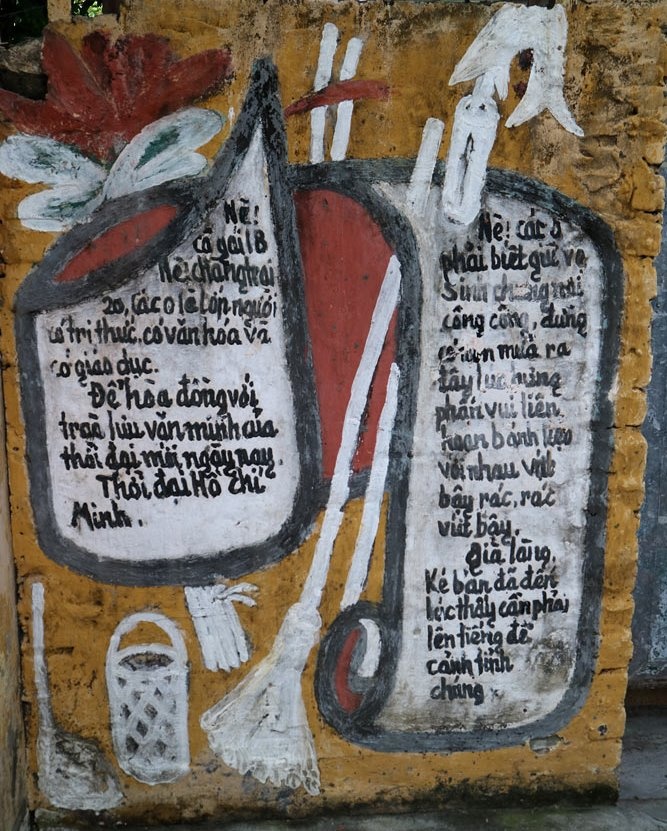 Nè!
cô gái 18
Nè! chàng trai
20, các o là lớp người
có tri thức, có văn hóa và
có giáo dục.
Để hòa đồng với
trào lưu văn minh của
thời đại mới ngày nay.
Thời đại Hồ Chí
Minh.
Nè! các o
phải biết giữ vệ
sinh chung nơi
công cộng, đừng
mưa ra
hứng
phấn vui liên
hoan bánh kẹo
với nhau vứt
bậy rác, rác
vứt bậy,
già làng,
Kẻ bạn đã đến
lúc thấy cần phải
lên tiếng để
cảnh tỉnh
chúng